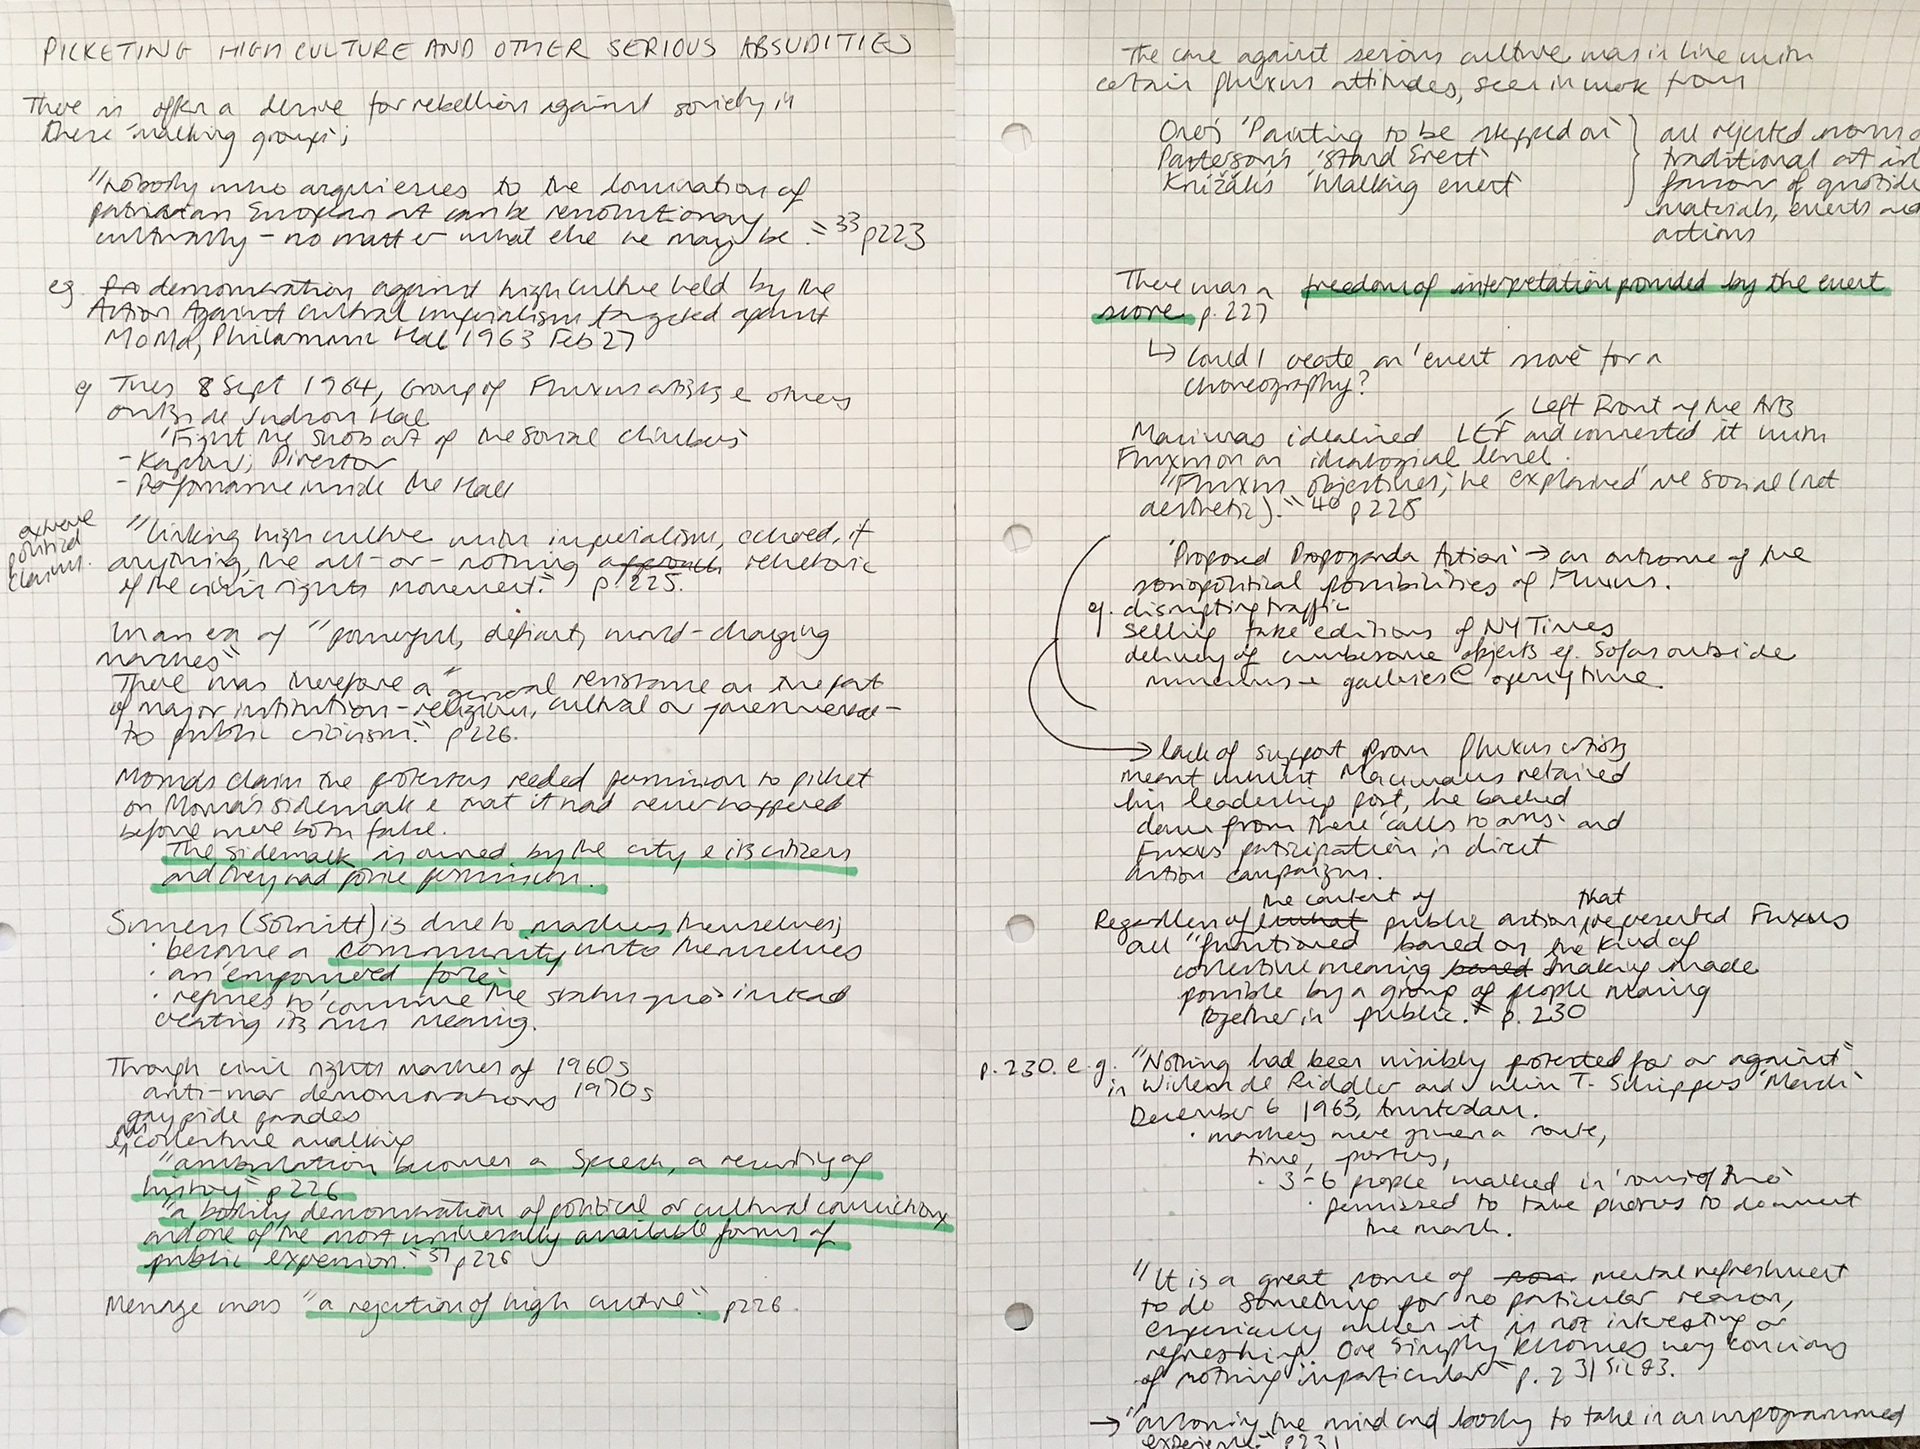 PICKETING HIGH CULTURE AND OTHER SERIOUS ABSUDITIES
There is often a desire for rebellion against society in
these 'walking groups';
"Nobody who acquiesces to the domination of
patrician European art can be revolutionary
culturally - no matter what else he may be." 33 p223
eg demonstration against high culture held by the
Action Against cultural imperialism targeted against
MoMA, Philamonic Hall 1963 Feb 27
eg Tues 8 Sept 1964, Group of Fluxus artists & others
outside Judson Hall
'Fight the snob art of the social climbers'
- Kaprow; Director
- Performance inside the Hall
extreme
political
claims.
"linking high culture with imperialism, echoed, if
anything, the all-or-nothing rhetoric
of the civil rights movement." p.225.
In an era of "powerful, defiant, world-changing
marches"
There was therefore a "general resistance on the part
of major institution - religious, cultural or governmental -
to public criticism." p226.
Moma's claim the protestors needed permission to picket
on Moma's sidewalk & that it had never happened
before were both false.
The sidewalk is owned by the city & its citizens
and they had police permission.
Sinners (Solnitt) is due to marches themselves;
· become a community unto themselves
· an 'empowered force'
· refuses to 'continue the status quo' instead
creating its own meaning.
Through civil rights marches of 1960s
anti-war demonstrations 1970s
gay pride parades
collective walking
"ambulation becomes a speech, a rewriting of
history" p226
"a bodily demonstration of political or cultural conviction
and one of the most universally available forms of
public expression." 37 p226
Message was "a rejection of high culture." p226.
The case against serious culture was in line with
certain fluxus attitudes, seen in work from
Ono's 'Painting to be stepped on'
Patterson's 'Stand Erect'
Knížák's 'Walking event'
all rejected norms o
traditional art in
favour of quotidi
materials, events and
actions
There was a freedom of interpretation provided by the event
score p.227
↳ Could I create an 'event score' for a
choreography?
Left Front of the Arts
Maciunas idealised LEF and connected it with
Fluxus on an idealogical level.
"Fluxus objectives, he explained 'are social (not
aesthetic)." 40 p228
'Proposed Propoganda Action' → an outcome of the
sociopolitical possibilities of Fluxus.
eg. disrupting traffic
selling fake editions of NY Times
delivery of cumbersome objects eg. Sofas outside
museums + galleries @ opening time.
→ lack of support from fluxus artists
meant whilst Maciunas retained
his leadership post, he backed
down from these 'calls to arms' and
Fluxus participation in direct
action campaigns.
Regardless of the content of public action that represented Fluxus
all "functioned based on the kind of
collective meaning making made
possible by a group of people moving
together in public." p.230
p.230. e.g. "Nothing had been visibly protested for or against"
in Willem de Ridder and Wim T. Schippers 'March'
December 6 1963, Amsterdam.
· marchers were given a route,
time, posters,
· 3-6 people walked in
· permissed to take photos to document
the march.
"It is a great sense of mental refreshment
to do something for no particular reason,
especially when it is not interesting or
refreshing. One simply becomes very concious
of nothing in particular" p.231
→ "allowing the mind and body to take in an unprogrammed
experience." p231